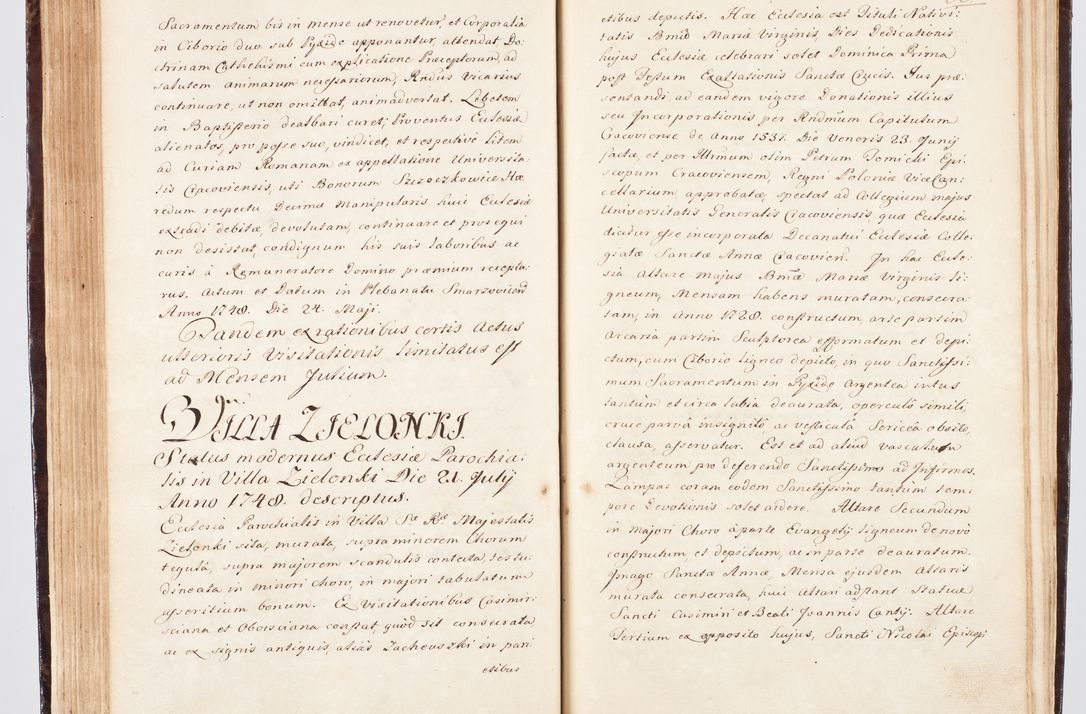 Sacramentum bis in mense ut renovetur, et Corporalia
in Ciborio duo sub Pyxide apponantur, attendat, Do-
ctrinam Cathehismi cum explicatione Præceptorum, ad
salutem animarum necessariorum, Rndus Vicarius
continuare, ut non omittat, animadvertat. Lebetem
in Baptisterio dealbari curet; Proventus Ecclesiæ
alienatos, pro posse suo, vindicet, et respectivè litem
ad Curiam Romanam ex appellatione Universita-
tis Cracoviensis, uti Bonorum Szczoczkowice Hæ
redum respectu Decimæ manipularis huic Ecclesiæ
extradi debitæ, devolutam, continuare et prosequi
non desistat, condignum his suis laboribus ac
curis à Remuneratore Domino præmium recepta-
rus. Actum et Datum in Plebanatu Smarzovicen
Anno 1748. Die 24. Maji.
Tandem ex rationibus certis Actus
ulterioris Visitationis limitatus est
ad Mensem Julium.
VILLA ZIELONKI.
Status modernus Ecclesiæ Parochia-
lis in Villa Zielonki Die 21. Julij
Anno 1748. descriptus.
Ecclesia Parochialis in Villa Sæ Ræ Majestatis
Zielonki sita, murata, supra minorem Chorum
tegulâ, supra majorem scandulis contecta, testu-
dineata in minori choro, in majori tabulatum
asseritium bonum. Ex visitationibus Casimir-
sciana et Oborsciana constat, quòd sit consecrata
ac ex signis antiquis, aliàs Zacheuszki in pari
etibus
etibus depictis. Hæc Ecclesia est Tituli Nativi-
tatis Bmæ Mariæ Virginis, Dies Dedicationis
hujus Ecclesiæ celebrari solet Dominica Prima
post Festum Exaltationis Sanctæ Crucis. Jus præ-
sentandi ad eandem vigore Donationis illius
seu Incorporationis per Rndmum Capitulum
Cracoviense de Anno 1537. Die Veneris 23. Junij
factæ, et per Illrmum olim Petrum Tomicki Epi-
scopum Cracoviensem, Regni Poloniæ ViceCan-
cellarium, approbatæ, spectat ad Collegium majus
Universitatis Generalis Cracoviensis, quæ Ecclesia
dicitur esse incorporata Decanatui Ecclesiæ Colle-
giatæ Sanctæ Annæ Cracovien. In hac Eccle-
sia Altare majus Bmæ Mariæ Virginis li-
gneum, Mensam habens muratam, consecra-
tam, in Anno 1728. constructum, arte partim
Arcaria partim Sculptorea efformatum et depi-
ctum, cum Ciborio ligneo depicto, in quo Sanctissi-
mum Sacramentum in Pyxide argentea intus
tantum et circa labia deaurata, operculô simili,
cruce parvâ insignitô ac vesticulâ Sericeâ obsito,
clausa, asservatur. Est et ad aliud vasculum
argenteum pro deferendo Sanctissimo ad Infirmos.
Lampas coram eodem Sanctissimo tantùm tem-
pore Devotionis solet ardere. Altare Secundum
in Majori Choro à parte Evangelij ligneum de novò
constructum et depictum, ac in parte deauratum.
Imago Sanctæ Annæ, Mensa ejusdem Altaris
murata consecrata, huic Altari adstant Statuæ
Sancti Casimiri et Beati Joannis Cantij. Altare
Tertium ex opposito hujus, Sancti Nicolai Episcopi